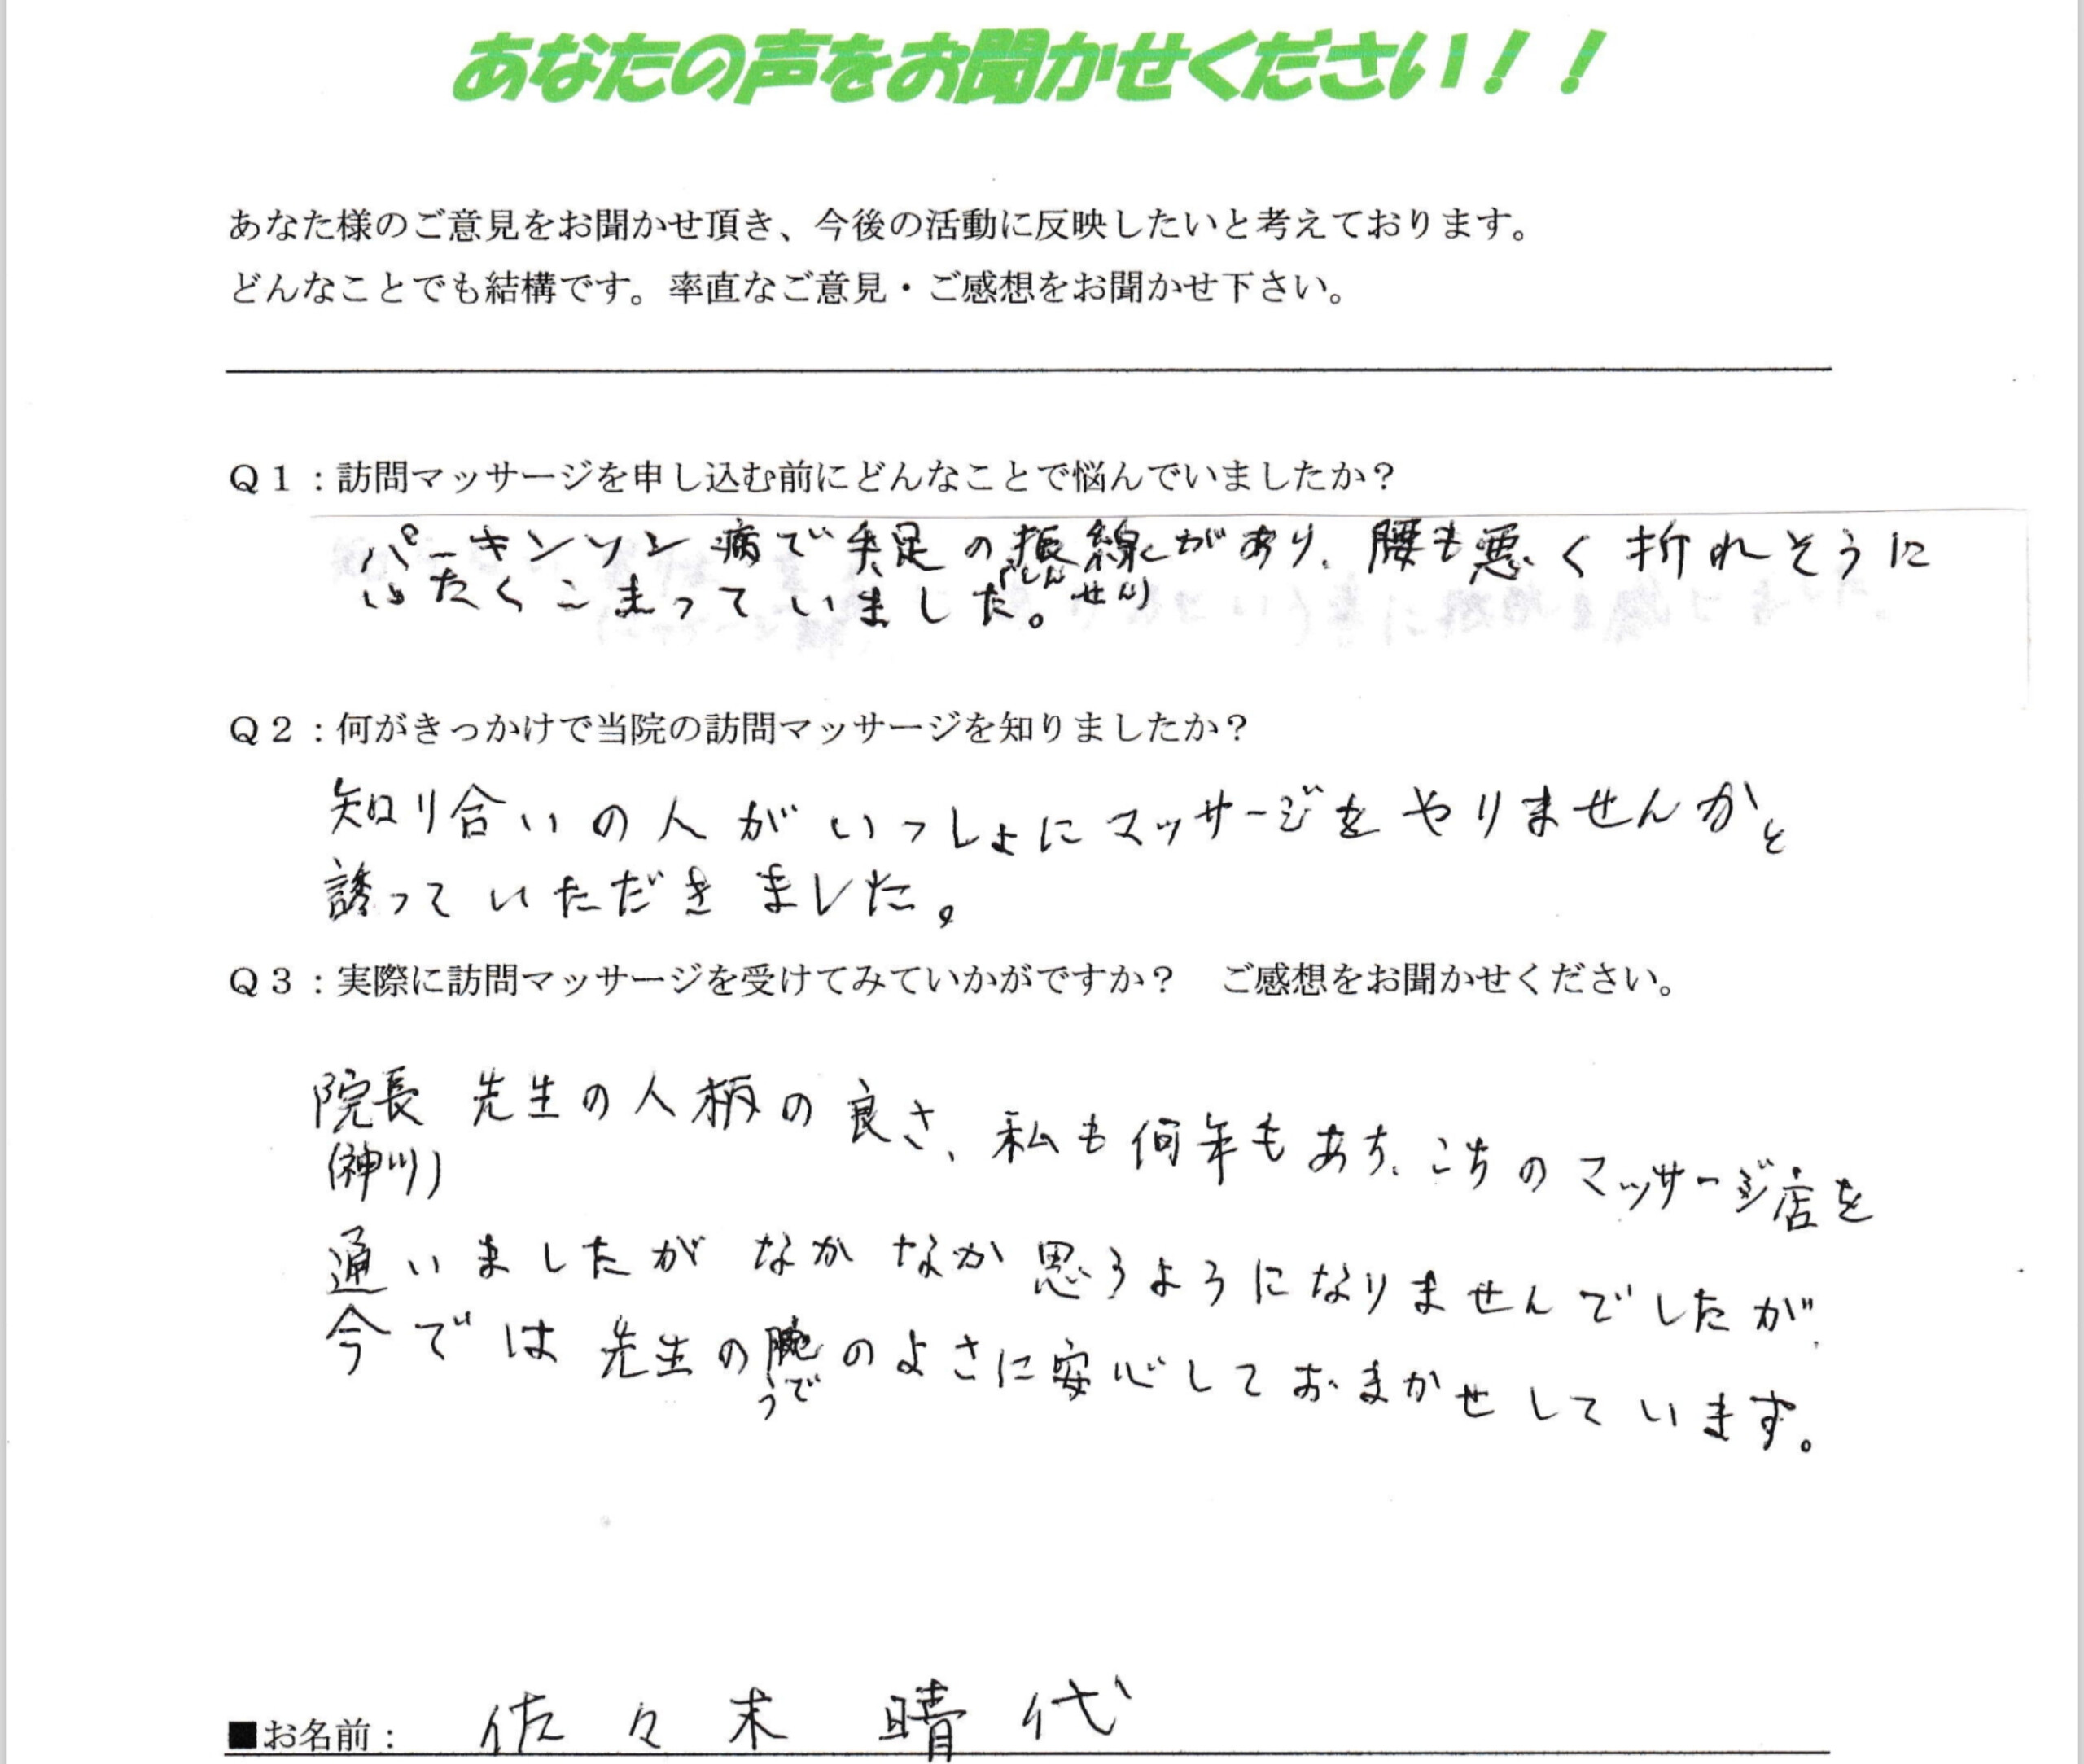 あなたの声をお聞かせください！！
あなた様のご意見をお聞かせ頂き、今後の活動に反映したいと考えております。
どんなことでも結構です。率直なご意見・ご感想をお聞かせ下さい。
Ｑ１：訪問マッサージを申し込む前にどんなことで悩んでいましたか？
パーキンソン病で手足の振線があり、腰も悪く折れそうに
いたくこまっていました。
しんせん
Ｑ２：何がきっかけで当院の訪問マッサージを知りましたか？
知り合いの人がいっしょにマッサージをやりませんかと
誘っていただきました。
Ｑ３：実際に訪問マッサージを受けてみていかがですか？　ご感想をお聞かせください。
院長 先生の人柄の良さ、私も何年もあち、こちのマッサージ店を
(神川)
通いましたがなかなか思うようになりませんでしたが、
今では先生の腕のよさに安心しておまかせしています。
うで
■お名前： 佐々木 晴代